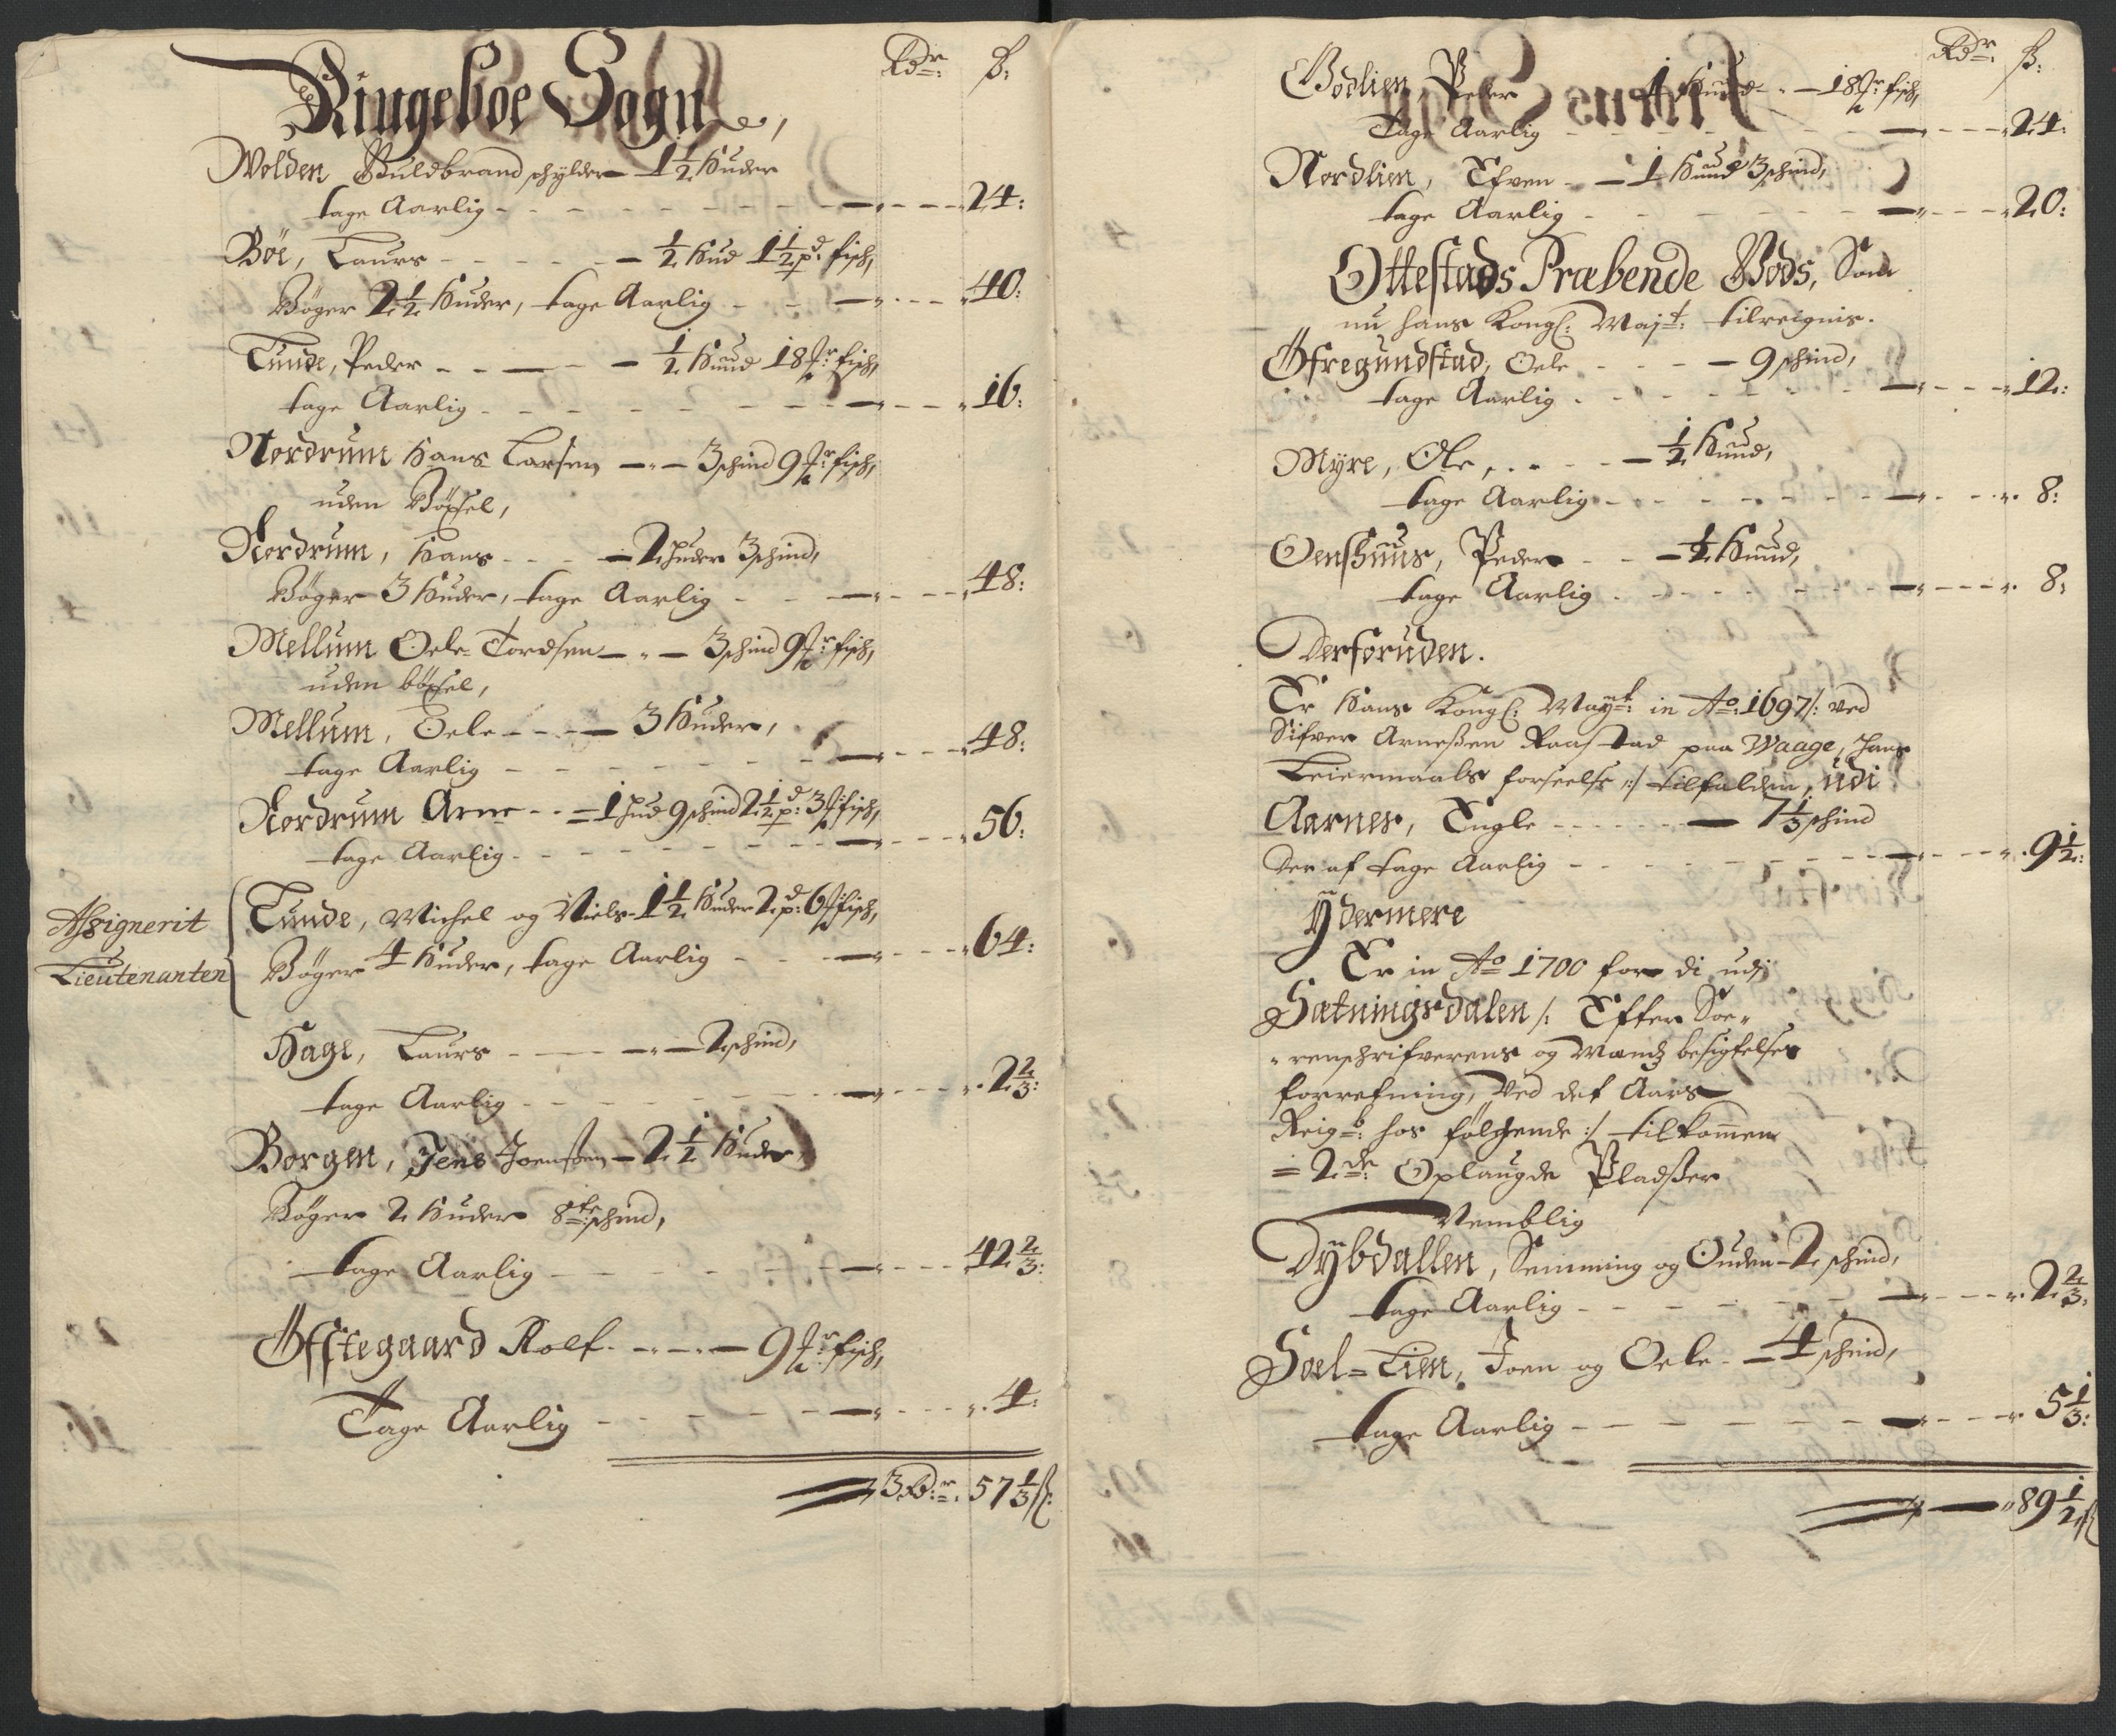 Rdr: ß:
Ringeboe Sogn,
Wolden Guldbrand schylder 1½ Huder
tage Aarlig - - - 24:
Böe, Laurs - - - ½ Hud 1½ pd: fisch,
Böger 2½ Huder, tage Aarlig - - - 40:
Tunde, Peder - - - ½ Huud 18 fisch,
tage Aarlig - - - 16:
Nordrum Hans Larsen - 3 schind 9 fisch,
uden Böxsel,
Nordrum, Hans - - - 2 huder 3 schind,
Böger 3 Huder, tage Aarlig - - - 48:
Mellum Oele Tordsen - 3 schind 9 fisch,
uden böxsel,
Mellum, Oele - - - 3 Huder,
tage Aarlig - - - 48:
Nordrum Arne - - = 1 hud 9 schind 2½ pd: 3 fisch,
tage Aarlig - - - 56:
Assignerit
Lieutenanten
Tunde, Michel og Niels - 1½ Huder 2 pd: 6 fisch,
Böger 4 Huder, tage Aarlig - - - 64:
Hage, Laurs - - - 2 schind,
tage Aarlig - - - 2⅔:
Borgen, Jens Joensen - 2½ Huder
Böger 2 Huder 8te schind,
tage Aarlig - - - 42⅔:
Öfstegaard Rolf. - - - 9 fisch,
Tage Aarlig - - - 4:
3 Rdr: 57⅓ ß:
Rdr: ß:
Bodlien, Peder 1 Huud - 18 fisch,
Tage Aarlig - - - 24:
Nordlien, Efven - - 1 Huud 3 schind,
tage Aarlig - - - 20:
Ottestads Præbende Gods, Som
nu hans Kongl: Mayt: tilreignis.
Öfregundstad, Oele - - - 9 schind,
tage Aarlig - - - 12:
Myre, Ole, - - - ½ Huud,
tage Aarlig - - - 8:
Oenshuus, Peder - - - ½ Huud,
tage Aarlig - - - 8:
Derforuden.
Er Hans Kongl: Mayt: in Ao: 1697 /: ved
Sifver Arneßen Raastad paa Waage, hans
Leiermaals forseelse :/ tilfalden, udi
Aarnes, Engle - - - 7⅓ schind
der af tage Aarlig - - - 9½:
Ydermere
Er in Ao 1700 for di udj
Sætningsdalen /: Efter Soe„
„renschrifverens og Mandz besigtelses
forretning, Ved det Aars
Reigb: hos fölgende :/ tilkommen
= 2de: Oplaugde Pladßer
Nemblig
Dybdallen, Semming og Ouden - 2 schind,
tage Aarlig - - - 2⅔:
Soel=Lien, Joen og Oele - 4 schind,
tage Aarlig - - - 5⅓:
89½ ß